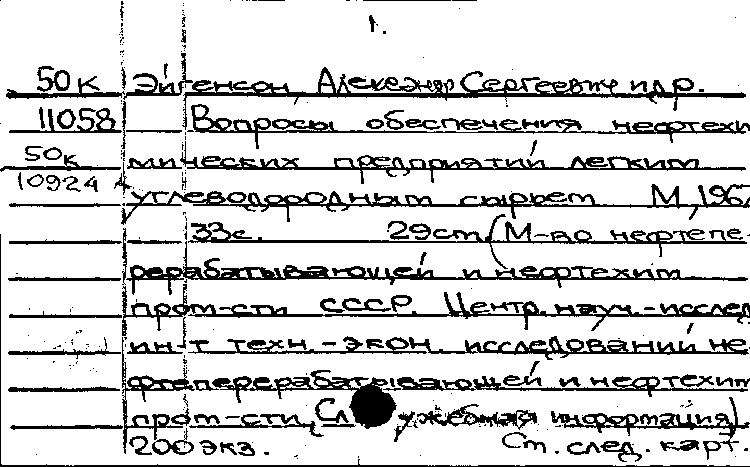 1.
50к Эйгенсон, Александр Сергеевич и др.
11058 Вопросы обеспечения нефтехи
50к мических предприятий легким
10924 углеводородным сырьем М, 1967
33с. 29см. (М-во нефтепе-
рерабатывающей и нефтехим.
пром-сти СССР. Центр. науч.-исслед
ин-т техн.-экон. исследований не
фтеперерабатывающей и нефтехим
пром-сти, Служебная информация)
200 экз. См. след. карт.